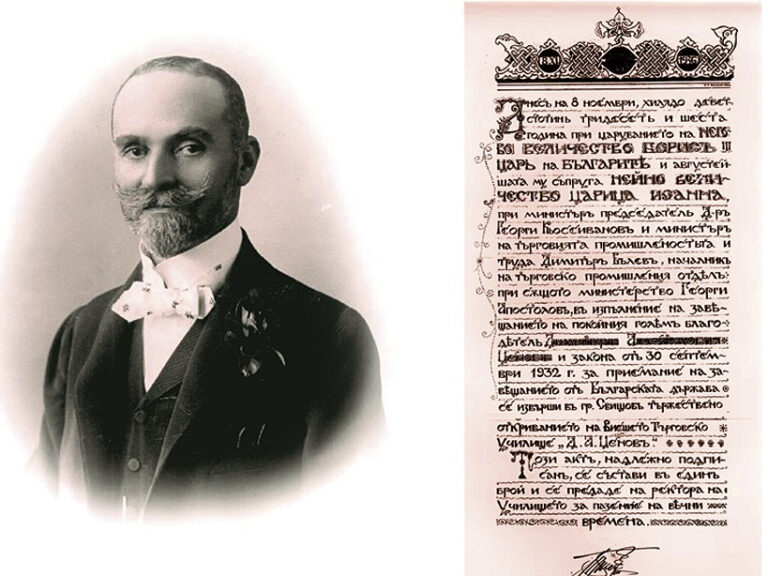 8.XI 1936
Днесъ на 8 ноември, хилядо девет-
стотинъ тридесеть и шеста
година при царуването на Него-
во Величество Борисъ III
Царь на Българитѣ и августей-
шата му съпруга Нейно Вели-
чество Царица Иоанна,
при министъръ председатель Д-ръ
Георги Кьосеивановъ и министъръ
на търговията промишлеността и
труда Димитъръ Вълевъ, началникъ
на търговско промишления отдѣлъ
при сѫщото министерство Георги
Апостоловъ, въ изпълнение на завѣ-
щанието на покойния голѣмъ благо-
дѣтель Димитъръ
Ценовъ и закона отъ 30 септем-
ври 1932 г. за приемание на за-
вѣщанието отъ Българската държава
се извърши въ гр. Свищовъ тържествено
откриването на Висшето Търговско
Училище „Д. А. Ценовъ".
Този актъ, надлежно подпи-
санъ, се състави въ единъ
брой и се предаде на ректора на
Училището за пазение на вѣчни
времена.